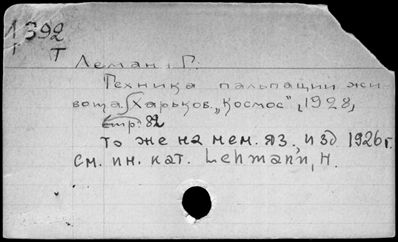 1392
T
Леман, Г.
Техника пальпации жи-
вота. Харьков, „Космос", 1928,
стр. 82
То же на нем. яз., изд 1926 г.
См. ин. кат. Lehmann, H.